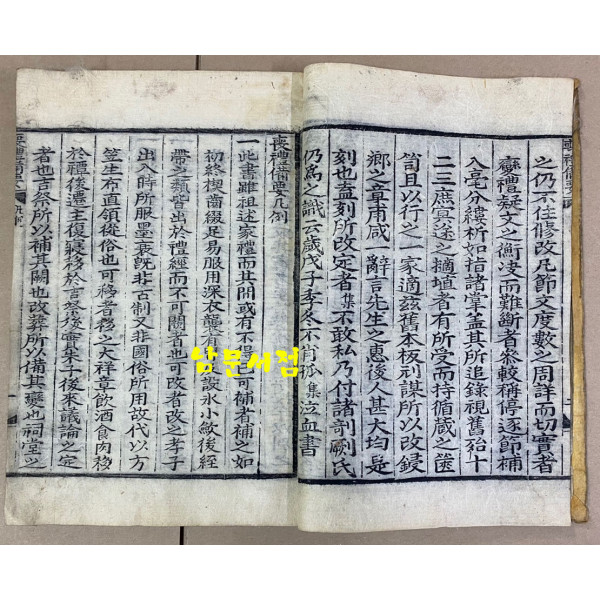 之仍不住修改凡節文度數之周詳而切實者
變禮疑文之衡决而難斷者叅較稱停逐節補
入毫分縷析如指諸掌盖其所追錄視舊殆十
二三庶冥途之擿埴者有所受而持循歲之篋
笥且以行之一家適玆舊本板刓謀所以改鋟
鄕之章甫咸一辭言先生之惠後人甚大均是
刻也盍刻所改定者集不敢私乃付諸剞劂氏
仍爲之識云歲戊子季冬不肖孤集泣血書
喪禮備要凡例
一此書雖祖述家禮而其間或有不得可補者補之如
初終楔齒綴足易服用深衣襲有設氷小斂後絰
帶之類皆出於禮經而不可闕者也可改者改之孝子
出入時所服墨衰旣非古制又非國俗所用故代以方
笠生布直領從俗也可移者移之大祥章飮酒食肉移
於禫後遷主復寢移於吉祭後會集子後來議論之定
者也吉祭所以補其闕也改葬所以備其變也祠堂之
남문서점